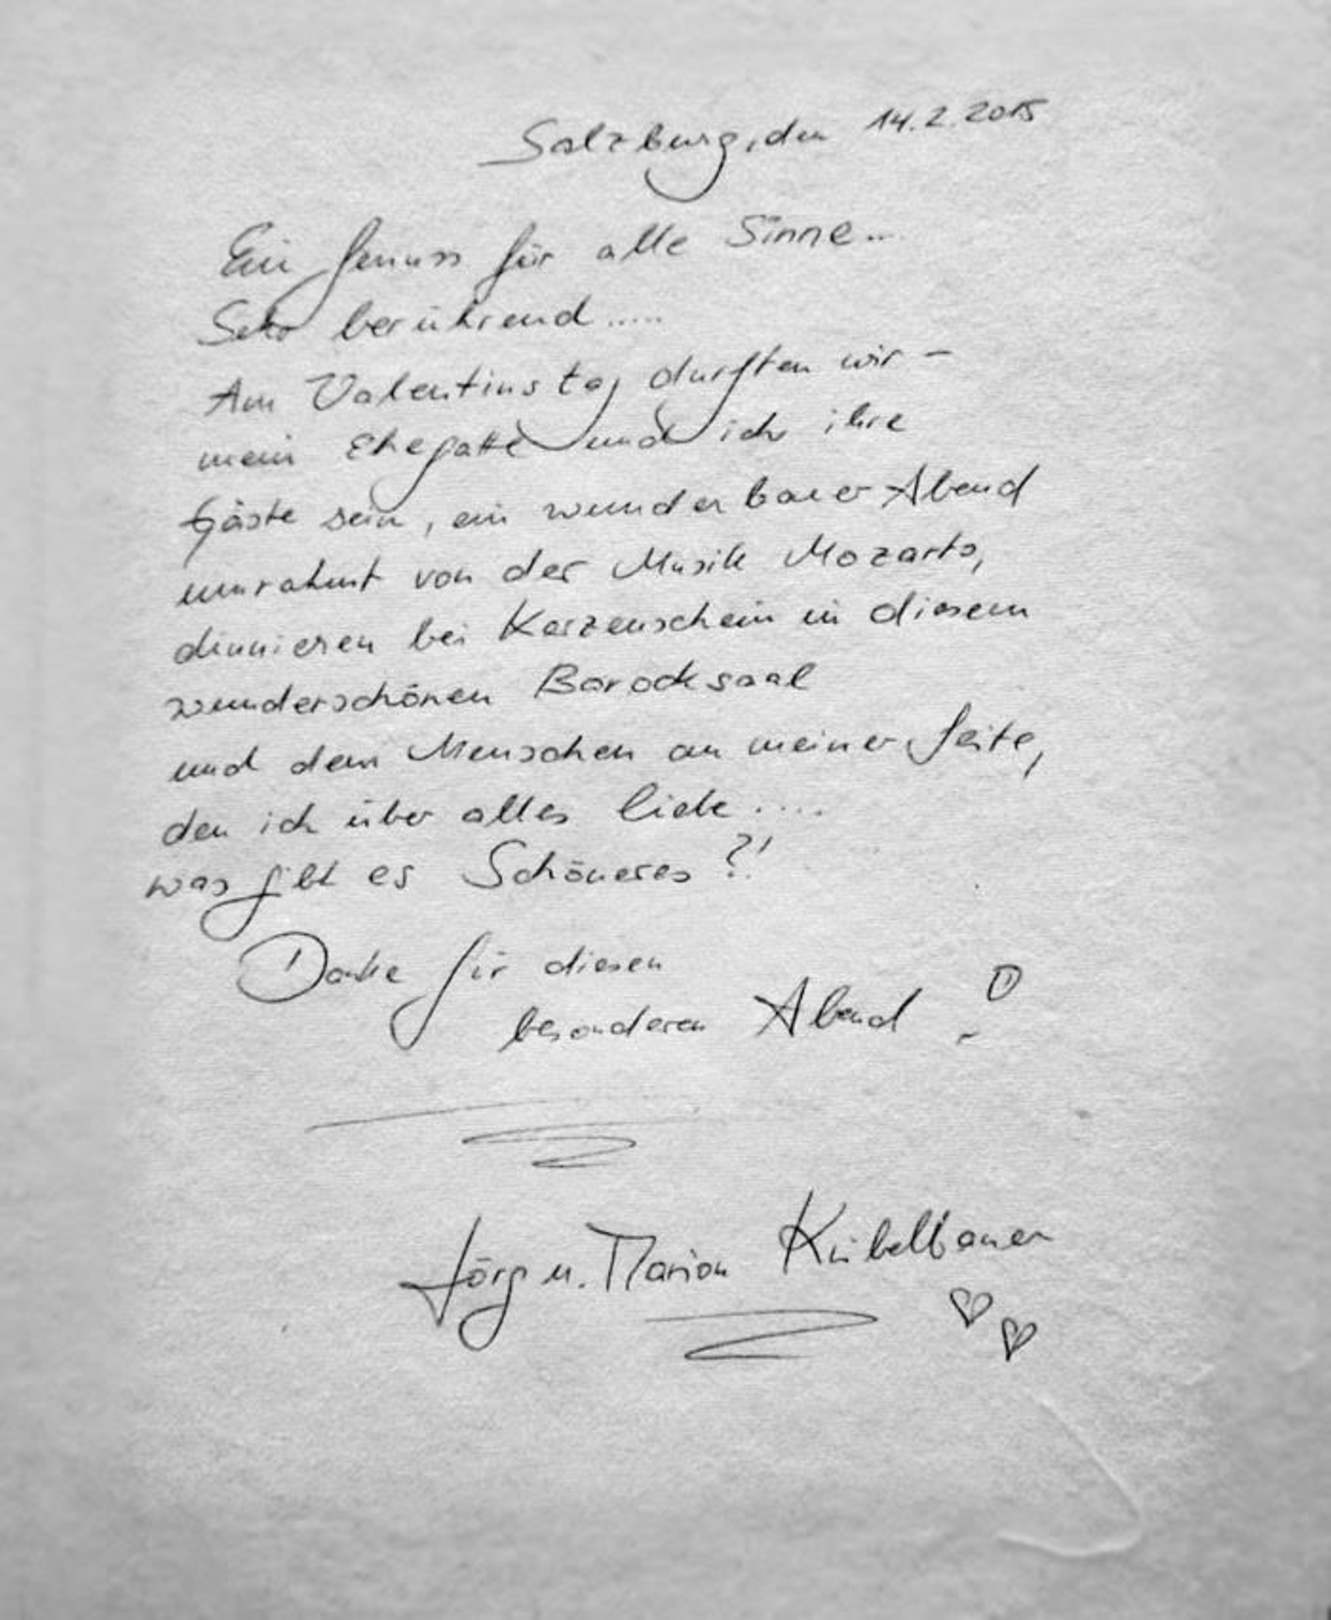 Salzburg, den 14.2.2015
Ein Genuss für alle Sinne...
Sehr berührend.....
Am Valentinstag durften wir –
mein Ehegatte und ich ihre
Gäste sein, ein wunderbarer Abend
umrahmt von der Musik Mozarts,
dinnieren bei Kerzenschein in diesem
wunderschönen Barocksaal
und dem Menschen an meiner Seite,
den ich über alles liebe ....
was gibt es Schöneres ?!
Danke für diesen
besonderen Abend !
Jörg u. Marion Kübelbauer